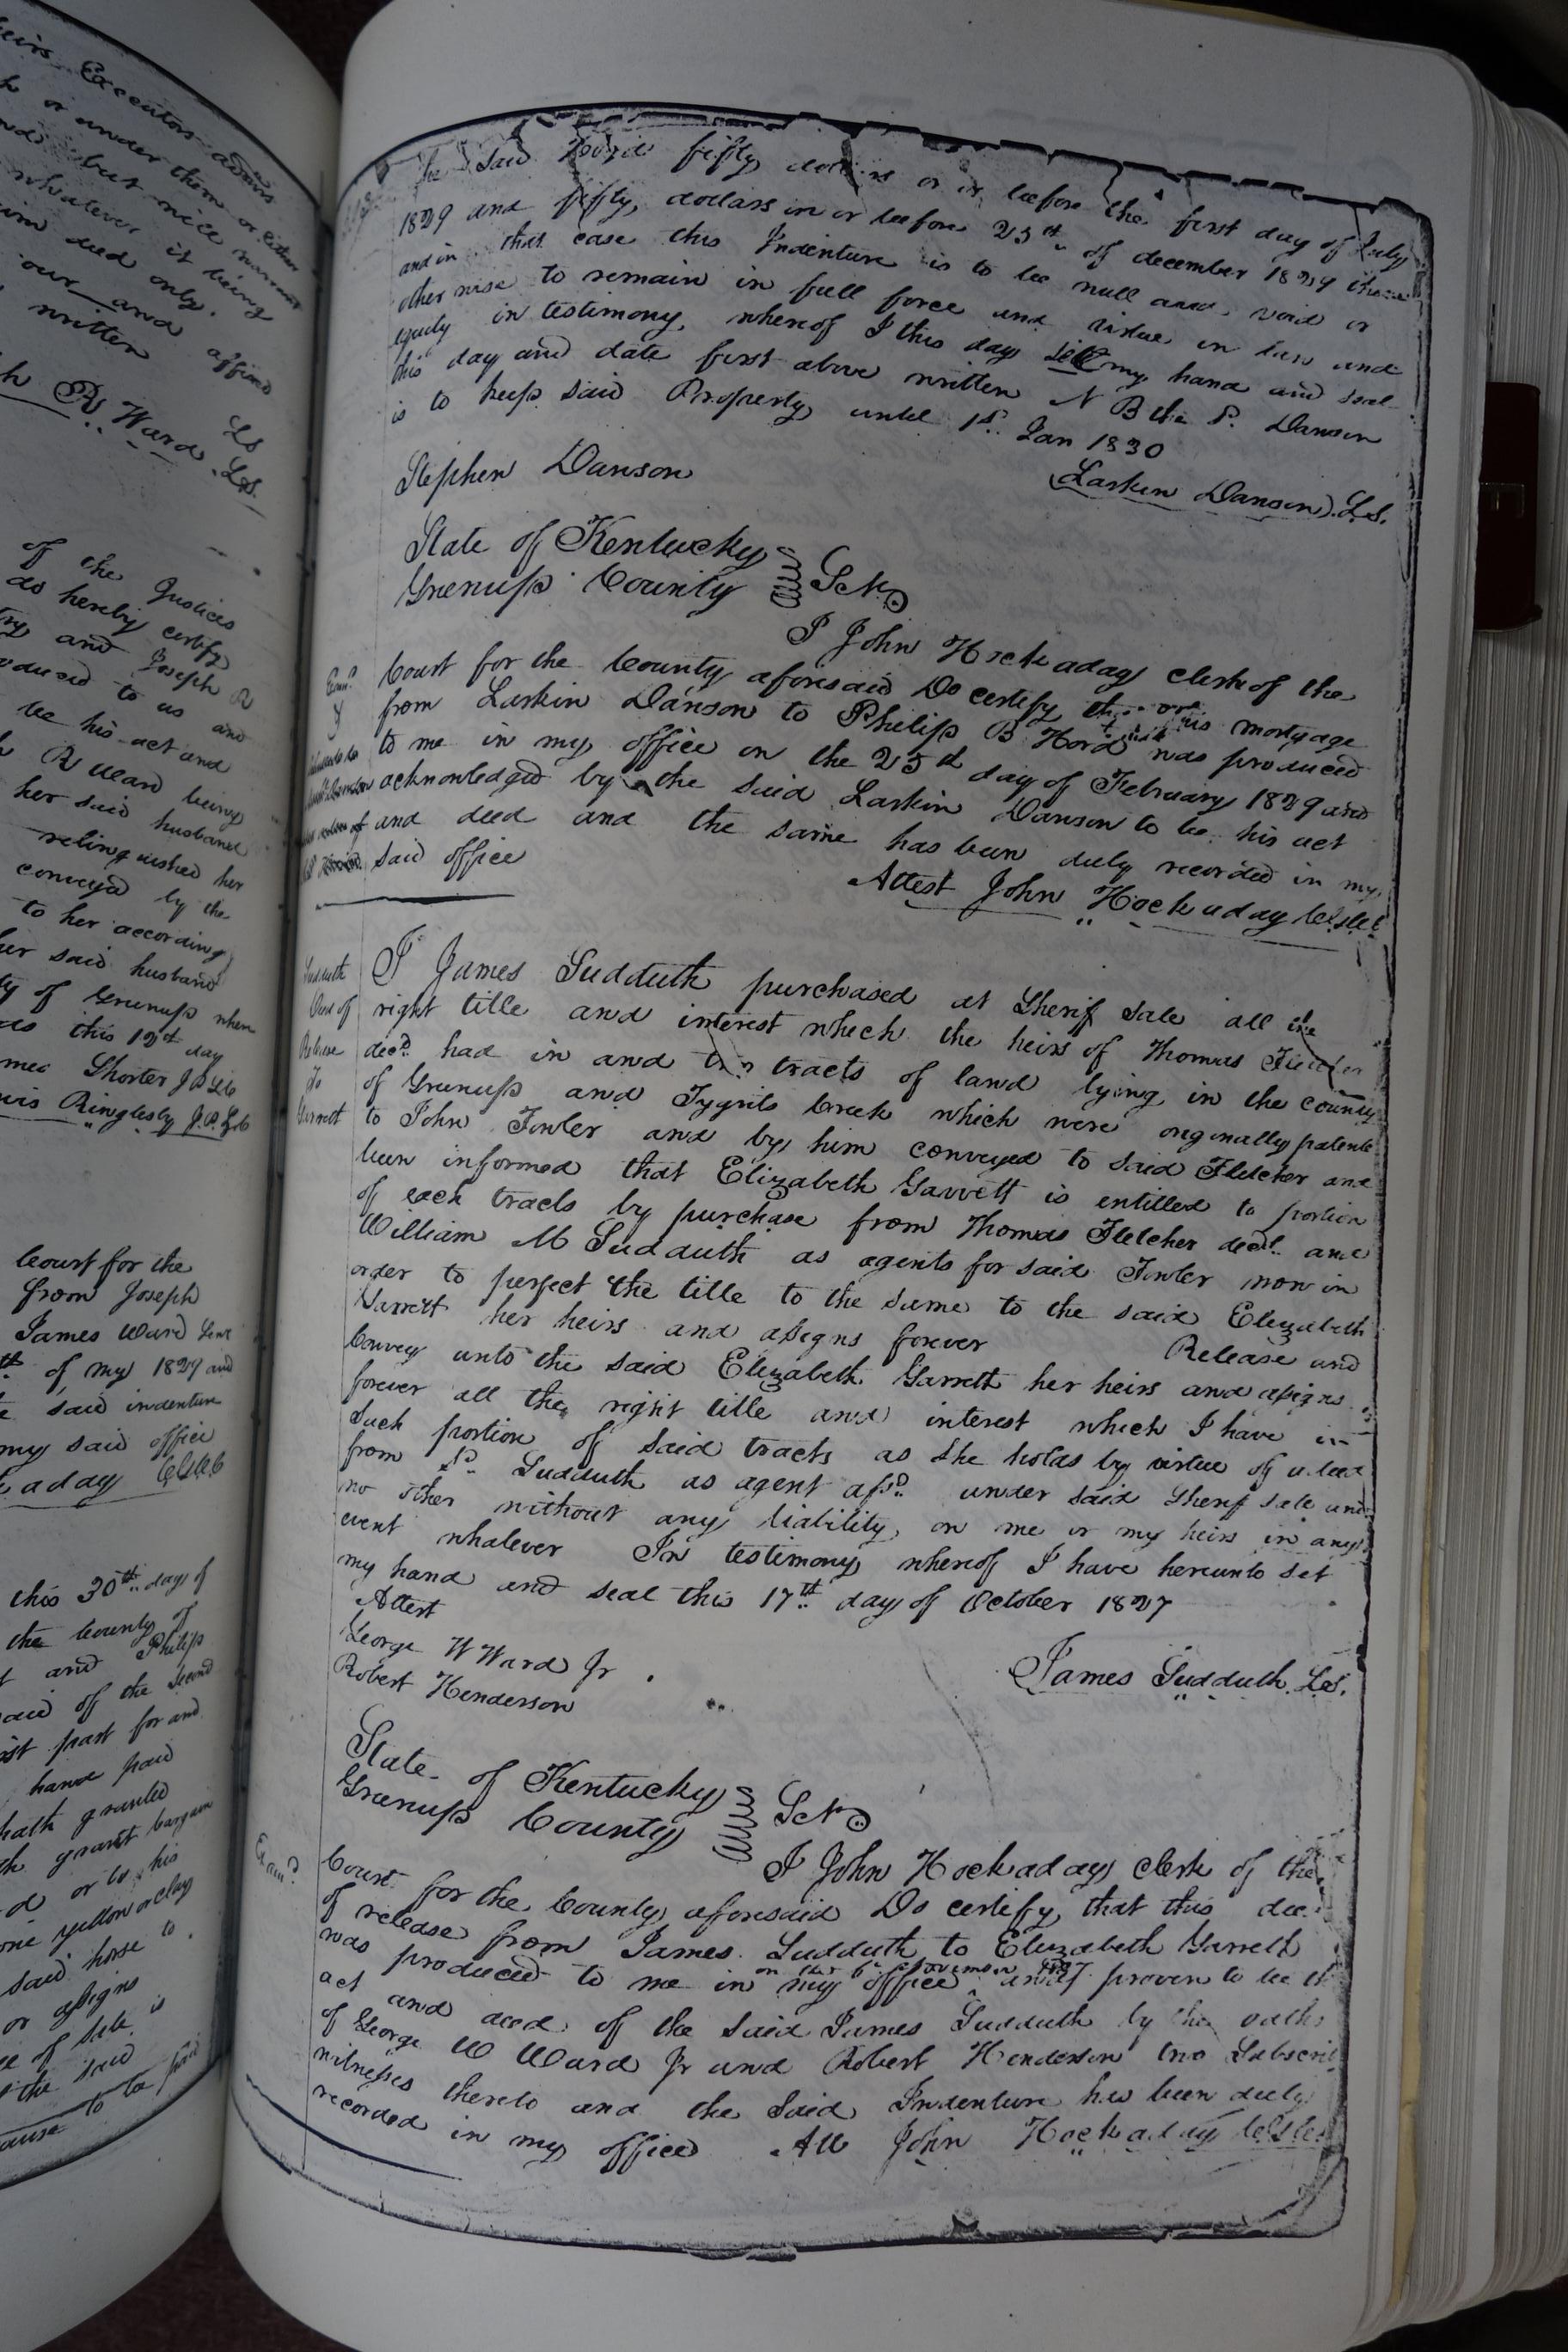 eirs Executors admrs
or under them or either
but nice warrant
whatever it being
deed only.
our and affixed
written
R Ward LS
LS.
of the Justices
do hereby certify
and Joseph R
produced to us and
be his act and
R Ward being
her said husband
relinquished her
conveyed by the
to her according
her said husband
of Greenup when
this 12th day
Shorter J P G C
Ringlesby J. P. G C
Court for the
from Joseph
James Ward
th of my 1829 and
said indenture
my said office
aday ClkGC
this 30th day of
the County of
and Philip
said of the second
part for and
hand paid
hath granted
grant bargain
or to his
one yellow or clay
said horse to
or assigns
of sale is
the said
cause to be paid
the said Hord fifty dollars on or before the first day of July
1829 and fifty dollars in or before 25th of december 1829 then
and in that case this Indenture is to be null and void or
otherwise to remain in full force and virtue in law and
equity in testimony whereof I this day sett my hand and seal
this day and date first above written N B the S. Danson
is to keep said Property until 1st. Jan 1830
Stephen Danson
Larkin Danson L.S.
State of Kentucky
Greenup County Sct
I John Hockaday clerk of the
Court for the County aforesaid Do certify this mortgage
from Larkin Danson to Philip B Hord was produced
to me in my office on the 25th day of February 1829 and
acknowledged by the said Larkin Danson to be his act
and deed and the same has been duly recorded in my
said office
Attest John Hockaday ClkGC
Sudduth
Deed of
Release
To
Garrett
I James Sudduth purchased at Sherif sale all the
right title and interest which the heirs of Thomas Fletcher
decd had in and tracts of land lying in the county
of Greenup and Tygrits Creek which were originally patente
to John Fowler and by him conveyed to said Fletcher and
been informed that Elizabeth Garrett is entilled to portion
of each tracts by purchase from Thomas Fletcher decd. and
William M Sudduth as agents for said Fowler now in
order to perfect the title to the same to the said Elizabeth
Garrett her heirs and assigns forever Release and
Convey unto the said Elizabeth Garrett her heirs and assigns
forever all the right title and interest which I have in
Such portion of said tracts as she holds by virtue of a deed
from sd. Sudduth as agent afsd. under said Sherif sale and
no other without any liability on me or my heirs in any
event whatever In testimony whereof I have hereunto set
my hand and seal this 17th day of October 1827
Attest
George W Ward Jr
Robert Henderson
James Sudduth L.S.
State of Kentucky
Greenup County Sct
Exam.d
I John Hockaday clerk of the
Court for the County aforesaid Do certify that this dee
of release from James Sudduth to Elizabeth Garrett
on the 6th November
was produced to me in my office and proven to be the
act and deed of the said James Sudduth by the oaths
of George W Ward Jr and Robert Henderson two Subscri
witnesses thereto and the said Indenture has been duly
recorded in my office Att John Hockaday ClkGC